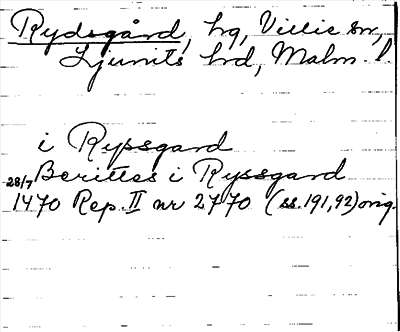 Rydsgård, hg, Villie sn,
Ljunits hd, Malm. l.
i Rypsgard
Berittes i Ryssgard
28/7
1470 Rep. II nr 2770 (ss. 191, 92) orig.